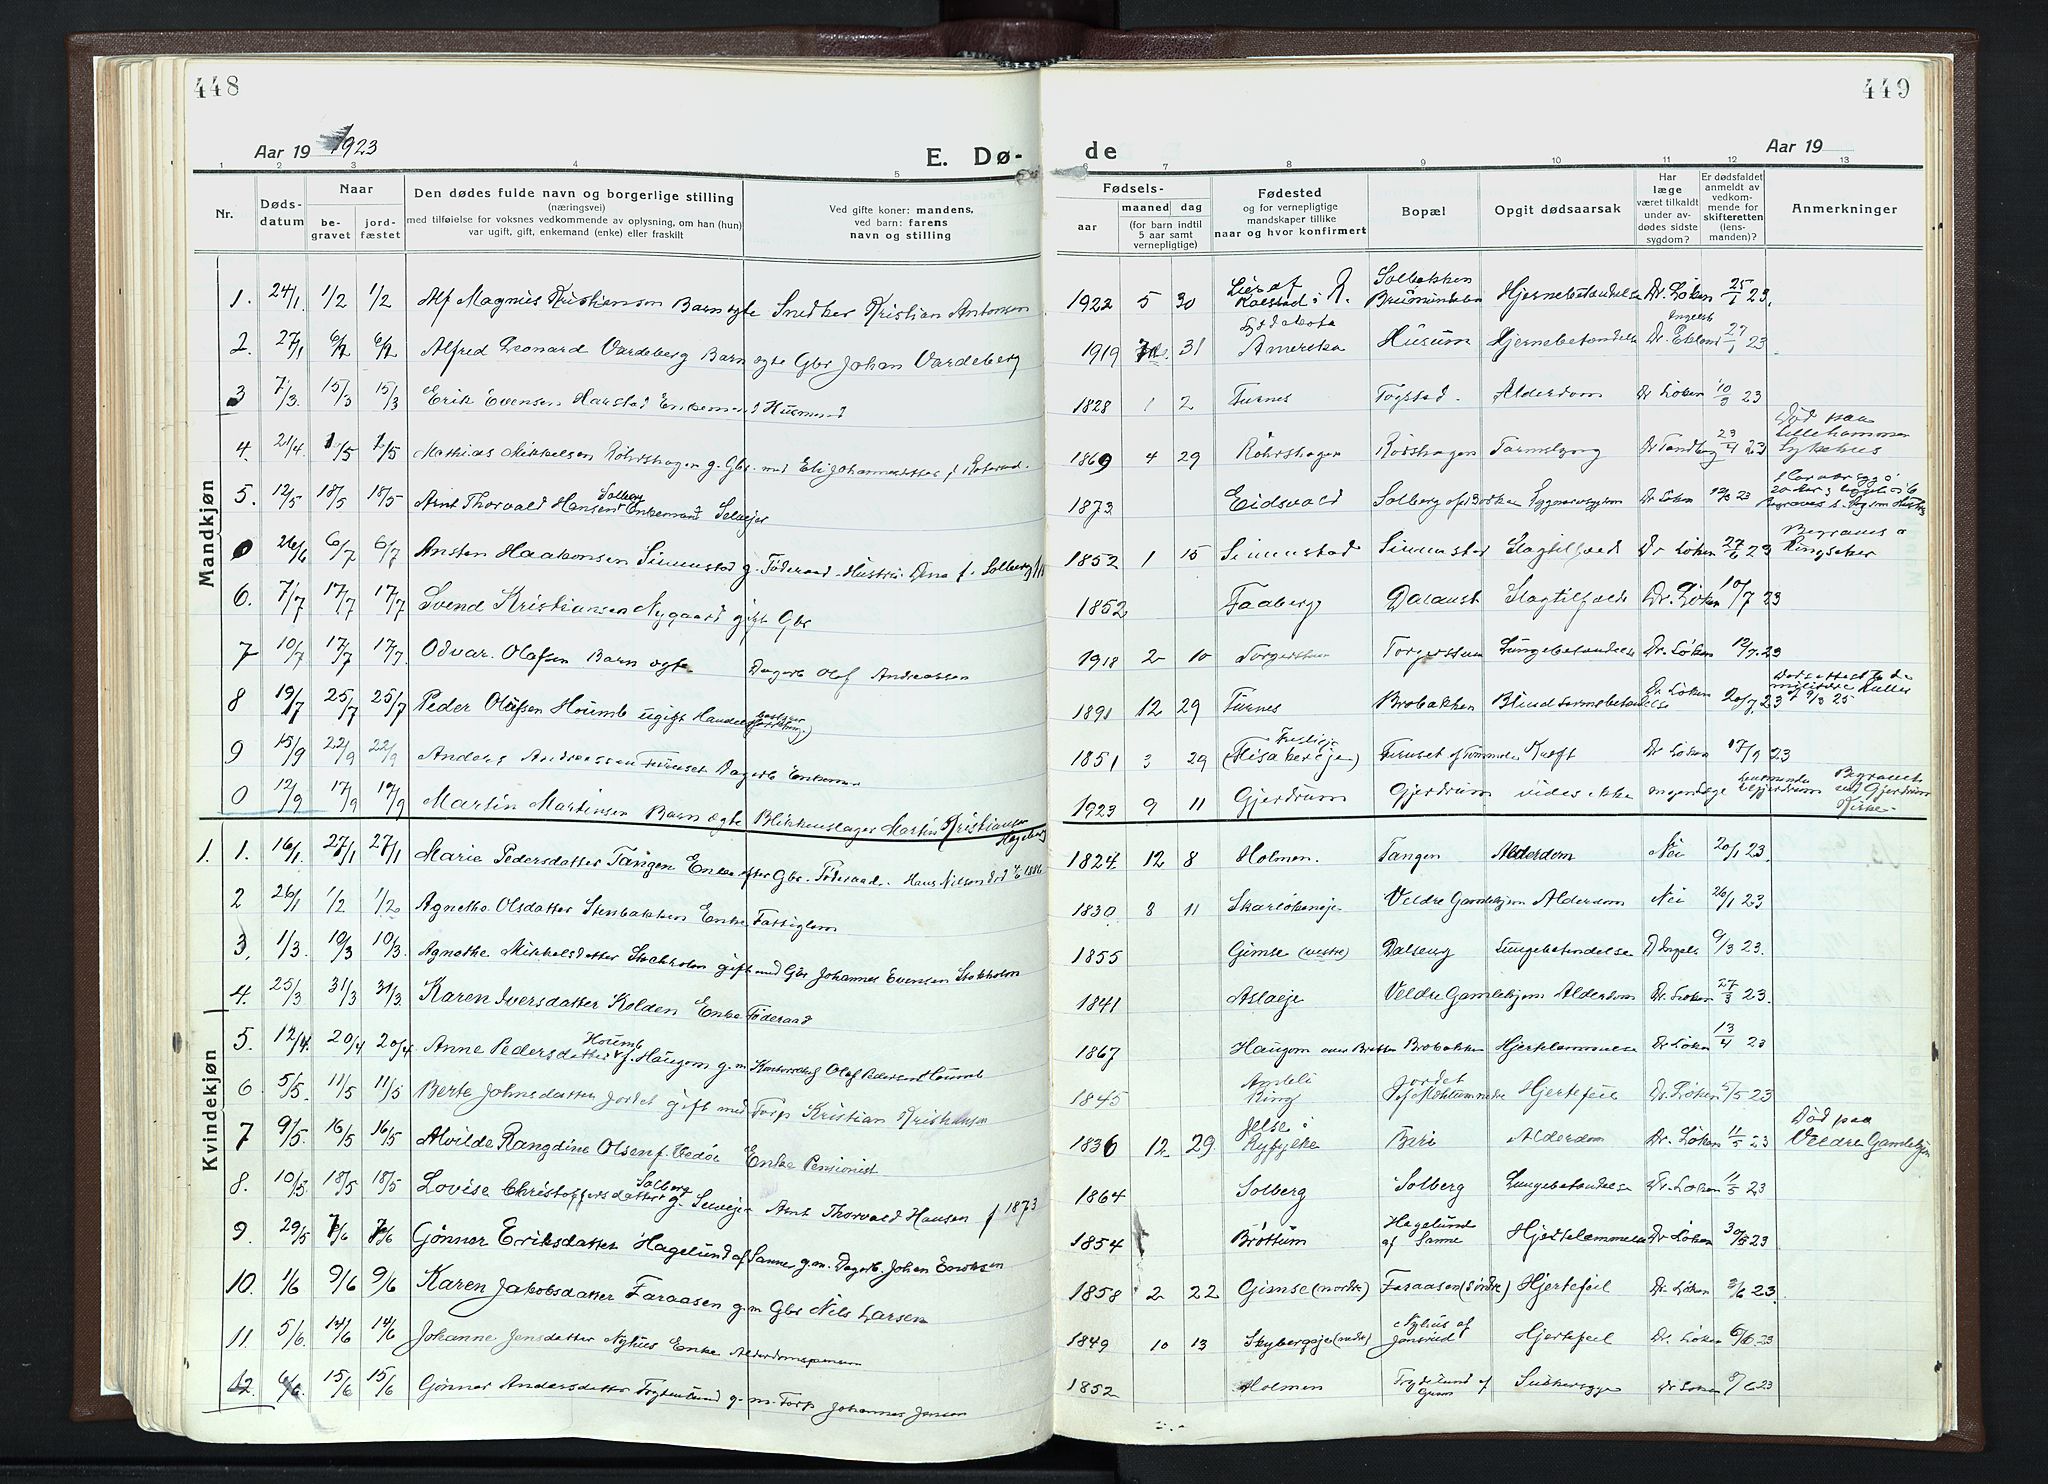 448
449
Aar 19 1923
E. Dø-
de
Aar 19
1 2 3 4 5 6 7 8 9 10 11 12 13
Nr.
Døds-
datum
Naar
be-
gravet
jord-
fæstet
Den dødes fulde navn og borgerlige stilling
(næringsvei)
med tilføielse for voksnes vedkommende av oplysning, om han (hun)
var ugift, gift, enkemand (enke) eller fraskilt
Ved gifte koner: mandens,
ved barn: farens
navn og stilling
Fødsels-
aar
maaned
dag
(for barn indtil
5 aar samt
vernepligtige)
Fødested
og for vernepligtige
mandskaper tillike
naar og hvor konfirmert
Bopæl
Opgit dødsaarsak
Har
læge
været tilkaldt
under av-
dødes sidste
sygdom?
Er dødsfaldet
anmeldt av
vedkom-
mende for
skifteretten
(lens-
manden)?
Anmerkninger
Mandkjøn
1. 24/1 1/2 1/2 Alf Magnus Kristiansen Barn ægte Snedker Kristian Antonsen 1922 5 30 Solbakken Hjernebetændelse Dr. Løken 25/1 23.
2. 27/1 6/2 6/2 Alfred Leonard Vardeberg Barn ægte Gbr Johan Vardeberg 1919 31 Amerika Husum Hjernebetændelse 27/1 23
3 7/3. 15/3 15/3 Erik Evensen Enkemand Husmand 1828 1 2 Furnes Alderdom Dr Løken 10/3 23
4. 21/4 Mathias Mikkelsen Røhrshagen g. Gbr. med Eli Johannesdatter 1869 4 29 Røhrshagen Rørshagen Tarmslyng 23/4 23 Død paa Lillehammer Sykehus
5. 12/5 18/5 18/5 Arnt Thorvald Hansen Solberg Enkemand Selveier 1873 Eidsvold Solberg Dr Løken 23
0 26/6 6/7 6/7 Ansten Haakonsen Simenstad g. Føderaad 1852 1 15 Simenstad Simenstad Slagtilfælde Dr Løken 27/6 23 Begraves i Ringsaker
6. 7/7 17/7 17/7 Svend Kristiansen Nygaard gift Gbr 1852 Faaberg Slagtilfælde Dr. Løken 10/7 23
7 10/7 17/7 17/7 Odvar Olafsen Barn ægte Dagarb Olaf Andreassen 1918 2 10 Torgerstuen Torgerstuen Lungebetændelse Dr. Løken 12/7. 23
8 19/7 25/7 25/7 Peder Olafsen Houmb ugift 1891 12 29 Furnes Brobakken Blindtarmsbetændelse Dr. Løken 20/7. 23
9 15/9 22/9 22/9 Anders Andreassen Furuset Dagarb Enkem. 1851 3 29 Furuset Kræft Dr Løken 17/9 23
0 12/9 17/9 17/9 Martin Martinsen Barn ægte Blikkenslager Martin Kristiansen 1923 9 11 Gjerdrum Gjerdrum vides ikke Begravet ved Gjerdrum Kirke.
Kvindekjøn
1. 1. 16/1. 27/1 27/1 Marie Pedersdatter Tangen Enke efter Gbr. Føderaad. Hans Nilsen 1824 12 8 Holmen. Tangen Alderdom Nei 20/1 23.
2 26/1 1/2 1/2 Agnethe Olsdatter Stenbakken Enke Fattiglem 1830 8 11 Veldre Gamlehjem Alderdom Nei 26/1 23
3. 1/3 10/3 10/3. Agnethe Mikkelsdatter Stockholm gift med Gbr Johannes Evensen Stokholm 1855 Gimse (vestre) Dalseng Lungebetændelse 9/3 23.
4. 25/3 31/3 31/3. Karen Iversdatter Kolden Enke Føderaad 1841 Veldre Gamlehjem Alderdom Dr. Løken 27/3 23.
5. 12/4. 20/4 20/4 Anne Pedersdatter Houmb f. Haugom g. m Olaf Pedersen Houmb 1867 Haugom Brobakken Hjertelammelse Dr Løken 13/4 23
6 5/5. 11/5 11/5 Berte Johnsdatter Jordet gift med Torp Kristian Kristiansen 1845 Ring Jordet Hjertefeil Dr. Løken 5/5 23
7 9/5. 16/5 16/5 Alvilde Rangdine Olsen Enke Pensionist 1836 12 29 Jelse i Ryfylke Biri Alderdom Dr. Løken 11/5 23 Død paa Veldre Gamlehjem
8. 10/5 18/5 18/5 Lovise Christoffersdatter Solberg g. Selveier Arnt Thorvald Hansen f 1873 1864 Solberg Solberg Lungebetændelse Dr. Løken 11/5 23
9 29/5 7/6 7/6 Gønner Eriksdatter Hagelund af Sanne g.m. Dagarb. Johan Eriksen 1854 Brøttum Hagelund af Sanne Hjertelammelse Dr Løken 30/5 23
10. 1/6 9/6 9/6 Karen Jakobsdatter Faraasen g.m Gbr Nils Larsen 1858 2 22 Gimse (nordre) Faraasen (søndre) Hjertefeil Dr. Løken 3/6 23.
11 5/6 14/6 14/6 Johanne Jensdatter Nyhus Enke Alderdomspension 1849 10 13 Nyhus af Hjertefeil Dr. Løken 6/6 23
12. 6/6. 15/6 15/6 Gønner Andersdatter g. m. Torp Johannes Jensen 1852 Holmen Sukkersyge Dr Løken 8/6 23